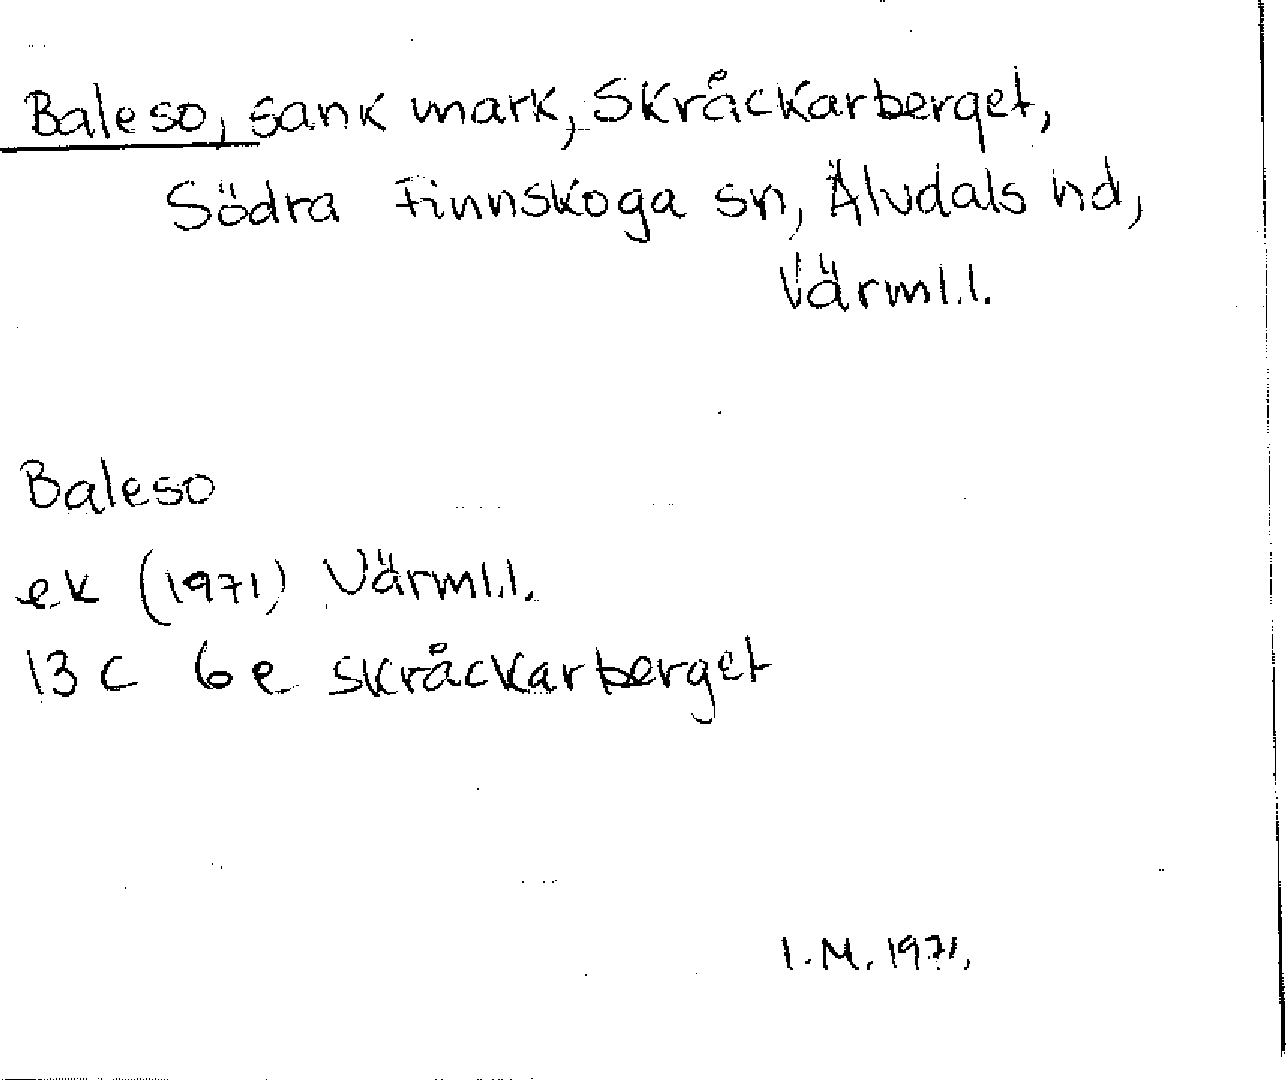 Baleso, sank mark, Skråckarberget,
Södra Finnskoga sn, Älvdals hd,
Värml.l.
Baleso
ek (1971) Värml.l.
13 C 6e Skråckarberget
I.M. 1971.